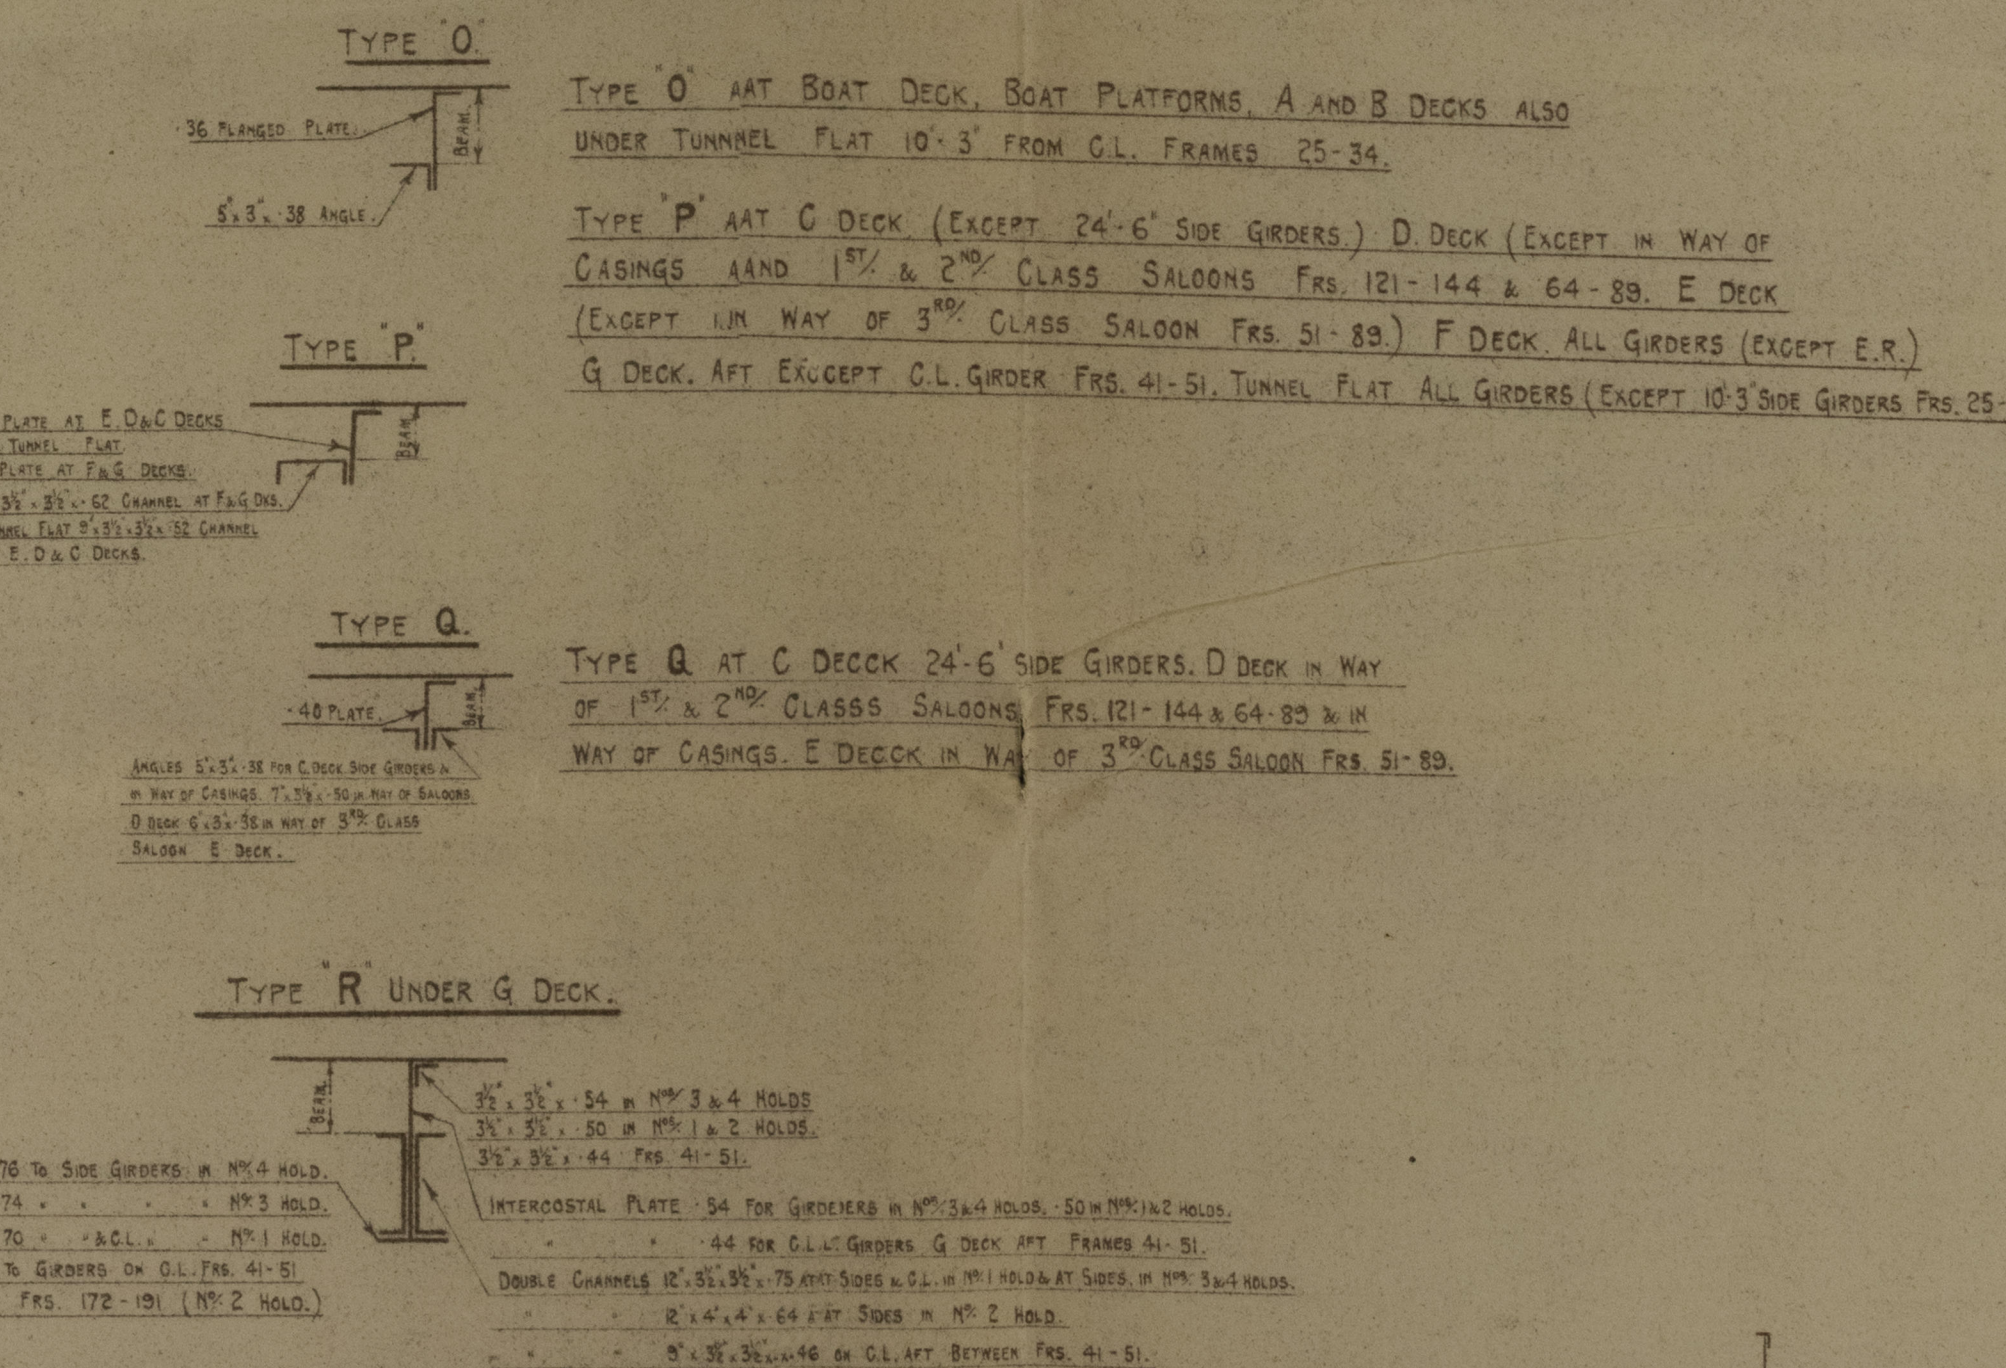 TYPE "O."
·36 FLANGED PLATE.
BEAM.
5"x 3"x ·38 ANGLE.
TYPE "O" AAT BOAT DECK, BOAT PLATFORMS, A AND B DECKS ALSO
UNDER TUNNNEL FLAT 10'-3" FROM C.L. FRAMES 25-34.
TYPE "P" AAT C DECK (EXCEPT 24'-6" SIDE GIRDERS.) D. DECK (EXCEPT IN WAY OF
CASINGS AAND 1ST/. & 2ND/ CLASS SALOONS FRS. 121-144 & 64-89. E DECK
(EXCEPT IN WAY OF 3RD/. CLASS SALOON FRS. 51-89.) F DECK. ALL GIRDERS (EXCEPT E.R.)
G DECK. AFT EXCCEPT C.L. GIRDER FRS. 41-51. TUNNEL FLAT ALL GIRDERS (EXCEPT 10'-3" SIDE GIRDERS FRS. 25-
TYPE "P."
BEAM.
PLATE AT E. D & C DECKS
TUNNEL FLAT.
PLATE AT F & G DECKS.
3½" x 3½" x ·62 CHANNEL AT F & G DKS.
NNEL FLAT 9"x 3½"x 3½"x ·52 CHANNEL
E. D & C DECKS.
TYPE Q.
·40 PLATE.
BEAM.
ANGLES 5"x 3"x ·38 FOR C. DECK SIDE GIRDERS &
IN WAY OF CASINGS. 7"x 3½"x ·50 IN WAY OF SALOONS
D DECK 6"x 3"x ·38 IN WAY OF 3RD/. CLASS
SALOON E DECK.
TYPE Q AT C DECCK 24'-6' SIDE GIRDERS. D DECK IN WAY
OF 1ST/. & 2ND/. CLASSS SALOONS FRS. 121-144 & 64-89 & IN
WAY OF CASINGS. E DECCK IN WAY OF 3RD/. CLASS SALOON FRS. 51-89.
TYPE "R" UNDER G DECK.
BEAM.
3½" x 3½" x ·54 IN NOS/ 3 & 4 HOLDS
3½" x 3½" x ·50 IN NOS/ 1 & 2 HOLDS.
3½" x 3½" x ·44 FRS. 41-51.
76 TO SIDE GIRDERS IN NO/. 4 HOLD.
74 " " " " NO/. 3 HOLD.
70 " " & C.L. " " NO/. 1 HOLD.
TO GIRDERS ON C.L. FRS. 41-51
FRS. 172-191 (NO/. 2 HOLD.)
INTERCOSTAL PLATE ·54 FOR IN NOS/ 3 & 4 HOLDS. ·50 IN NOS/. 1 & 2 HOLDS.
" " ·44 FOR C.L. GIRDERS G DECK AFT FRAMES 41-51.
DOUBLE CHANNELS 12"x 3½"x 3½"x ·75 ATAT SIDES & C.L. IN NO/. 1 HOLD & AT SIDES. IN NOS/. 3 & 4 HOLDS.
" " 12"x 4"x 4"x ·64 AAT SIDES IN NO/. 2 HOLD.
" " 9"x 3½"x 3½"x ·46 ON C.L. AFT BETWEEN FRS. 41-51.